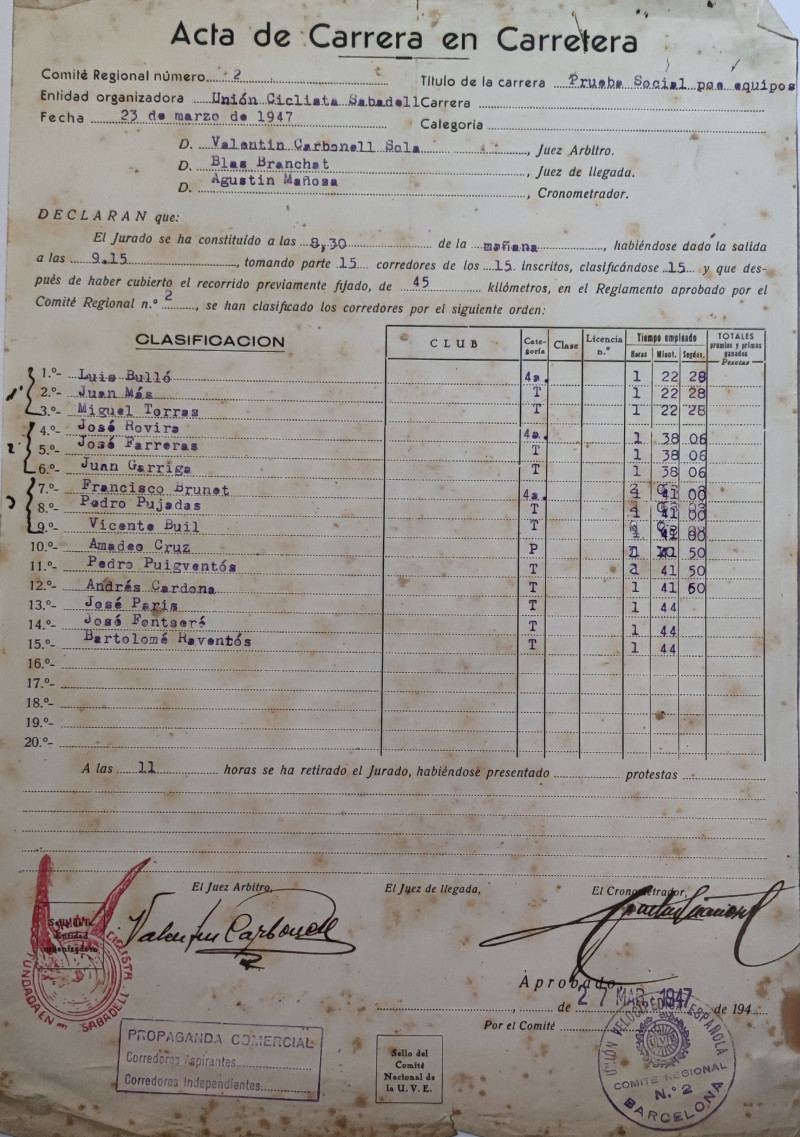 Acta de Carrera en Carretera
Comité Regional número 2 Título de la carrera Prueba Social por equipos
Entidad organizadora Unión Ciclista Sabadell Carrera
Fecha 23 de marzo de 1947 Categoría
D. Valentin Carbonell Sola, Juez Arbitro.
D. Blas Branchat, Juez de llegada.
D. Agustin Mañosa, Cronometrador.
DECLARAN que:
El Jurado se ha constituído a las 8,30 de la mañana, habiéndose dado la salida
a las 9.15, tomando parte 15 corredores de los 15 inscritos, clasificándose 15 y que des-
pués de haber cubierto el recorrido previamente fijado, de 45 kilómetros, en el Reglamento aprobado por el
Comité Regional n.º 2, se han clasificado los corredores por el siguiente orden:
CLASIFICACION CLUB Cate-goría Clase Licencia n.º Tiempo empleado Horas Minut. Segdos. TOTALES premios y primas ganados Pesetas
1.º- Luis Bulló 4a. 1 22 28
2.º- Juan Más T 1 22 28
3.º- Miguel Torras T 1 22 28
4.º- José Rovira 4a. 1 38 06
5.º- José Farreras T 1 38 06
6.º- Juan Garriga T 1 38 06
7.º- Francisco Brunet 4a. 41 00
8.º- Pedro Pujadas T 41 00
9.º- Vicente Buil T
10.º- Amadeo Cruz P 50
11.º- Pedro Puigventós T 41 50
12.º- Andrés Cardona T 1 41 50
13.º- José Paris T 1 44
14.º- José Fontseré T 1 44
15.º- Bartolomé Raventós T 1 44
16.º-
17.º-
18.º-
19.º-
20.º-
A las 11 horas se ha retirado el Jurado, habiéndose presentado protestas
El Juez Arbitro, El Juez de llegada, El Cronometrador,
Valentin Carbonell
Sello de la
Entidad
organizadora
CICLISTA
FUNDADA EN
SABADELL
Aprobado
27 MAR. 1947
de de 194
Por el Comité
PROPAGANDA COMERCIAL
Corredores Aspirantes
Corredores Independientes
Sello del
Comité
Nacional de
la U.V.E.
UNION VELOCIPEDICA ESPAÑOLA
U.V.E.
COMITÉ REGIONAL
N.º 2
BARCELONA